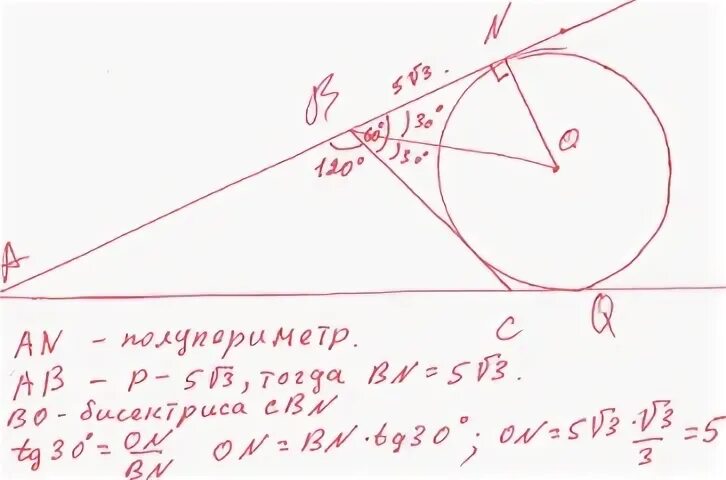 N
5√3.
B
60°
30°
30°
120°
O
A
C
Q
AN - полупериметр.
AB - P - 5√3, тогда BN = 5√3.
BO - бисектриса CBN
tg30° = ON/BN ON = BN · tg30°; ON = 5√3 · √3/3 = 5